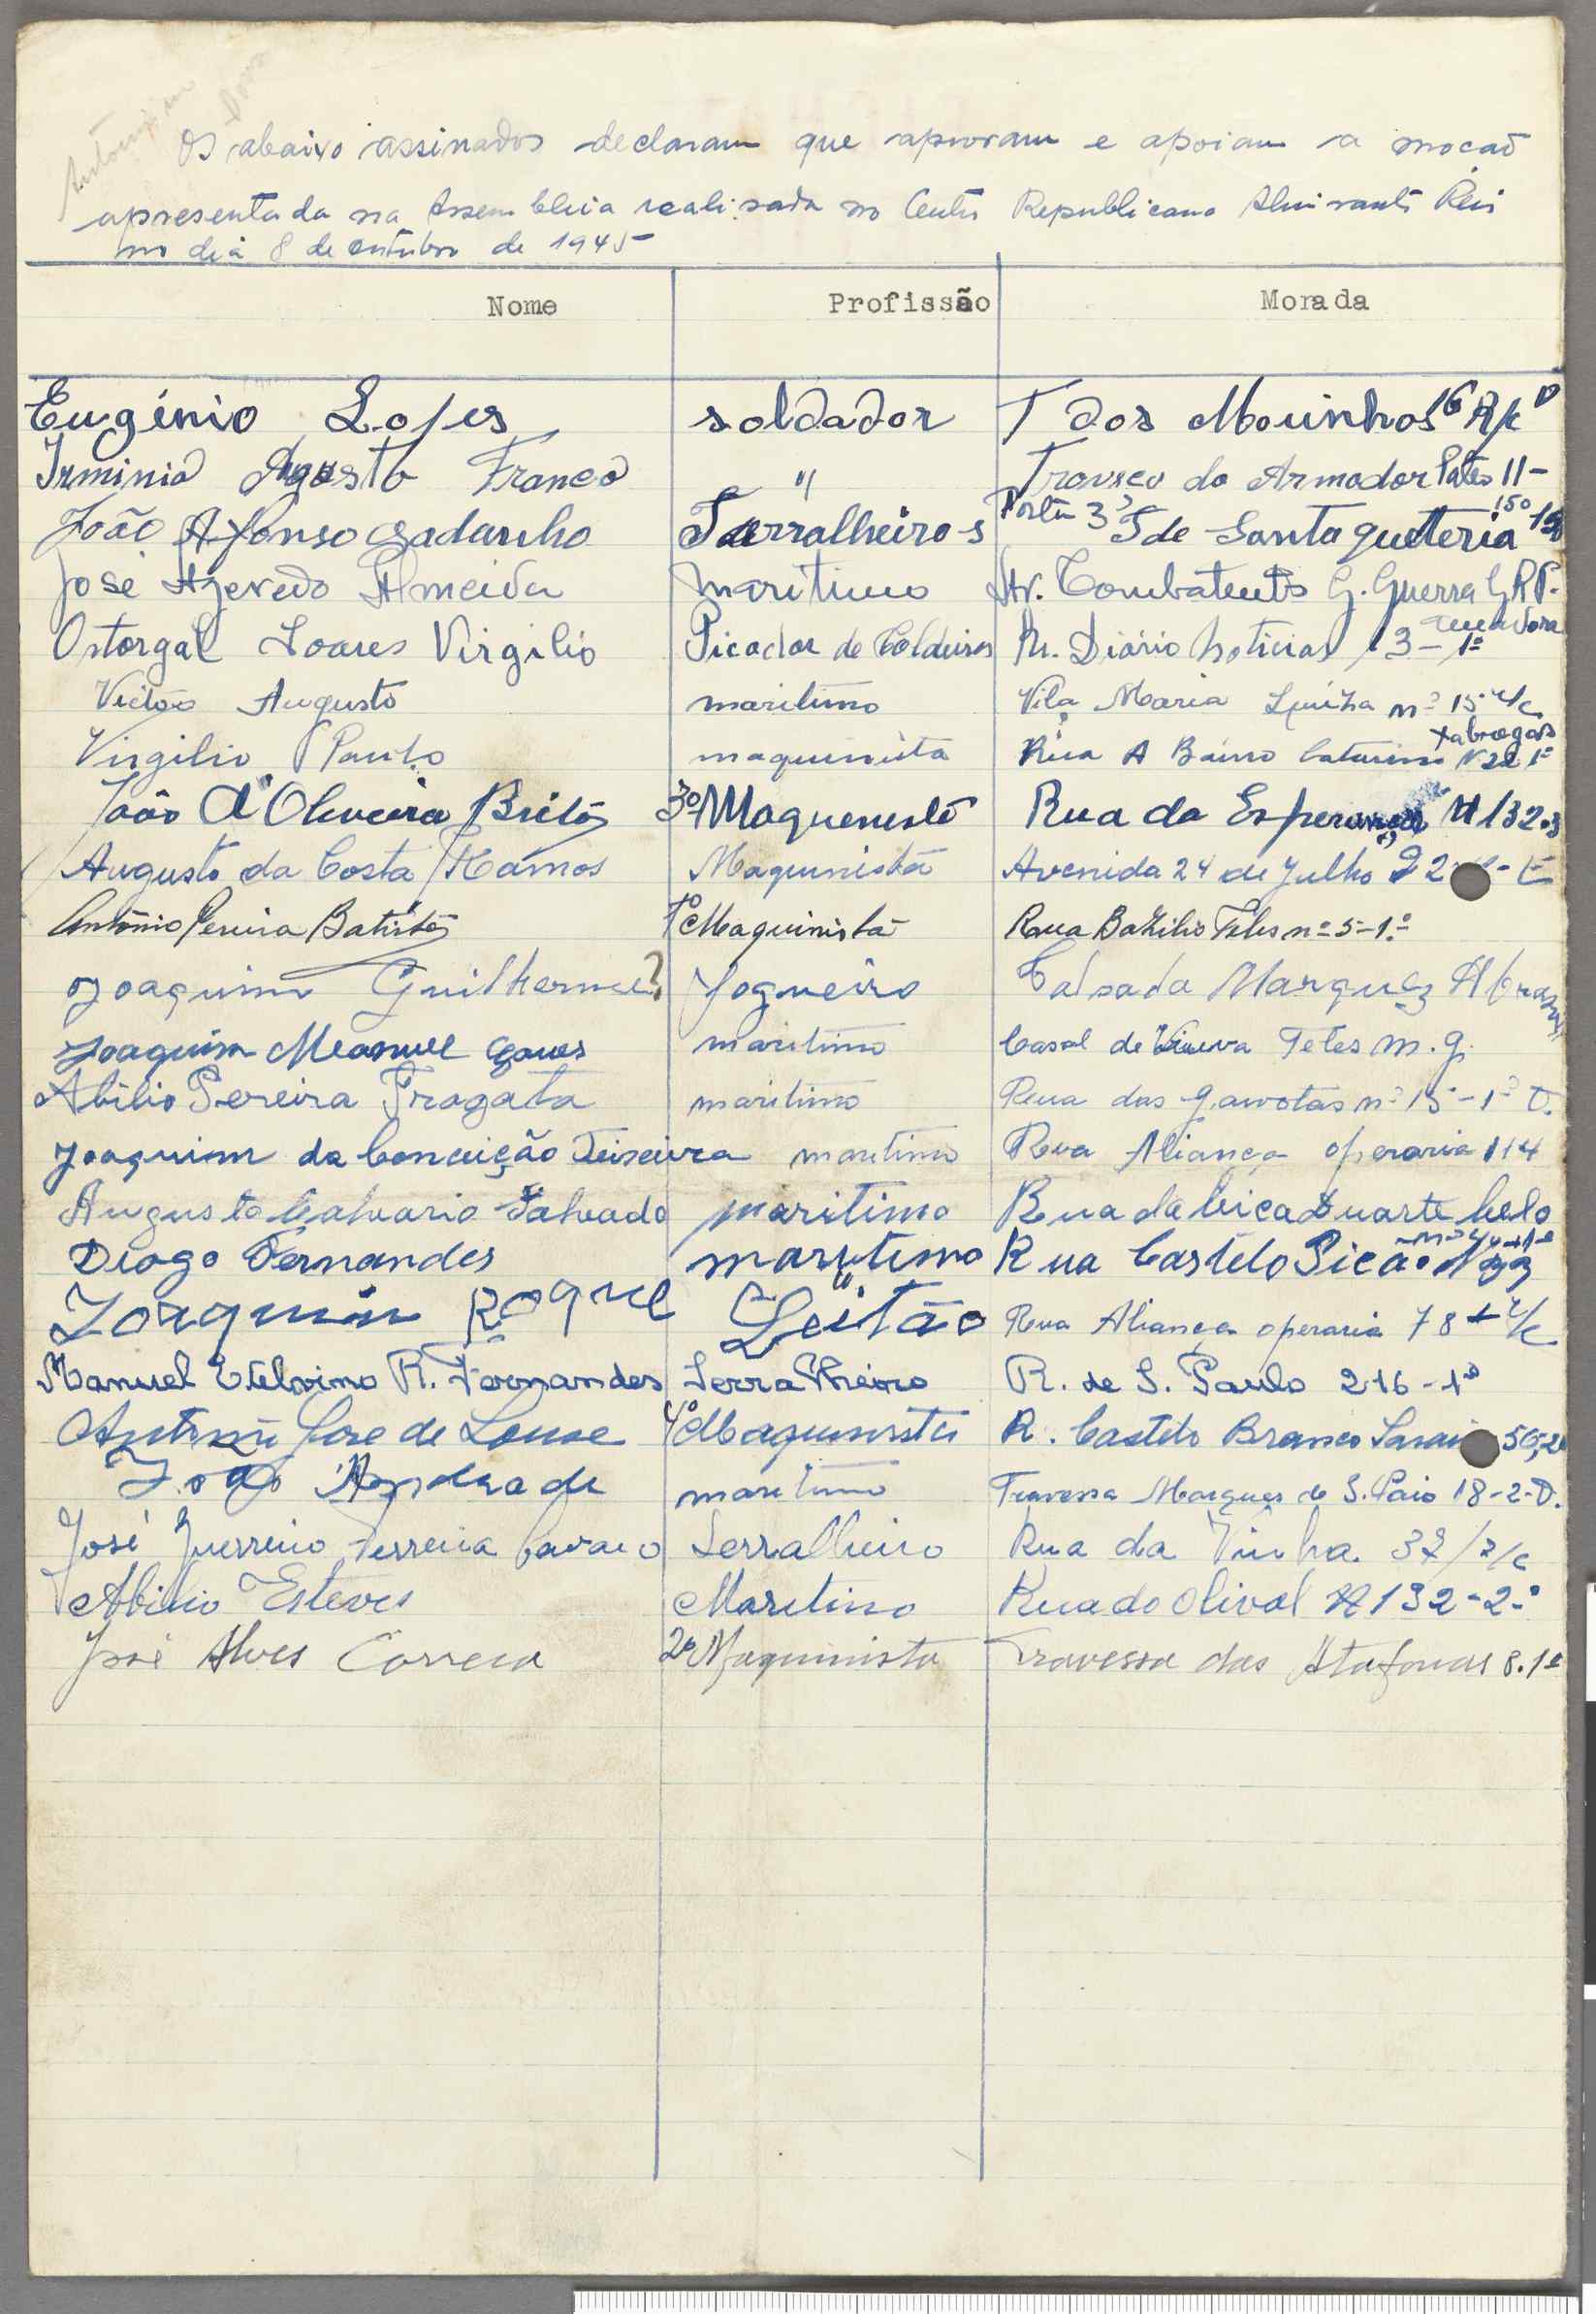 Os abaixo assinados declaram que aprovam e apoiam a moção
apresentada na Assembleia realisada no Centro Republicano Almirante Reis
no dia 8 de outubro de 1945
Nome Profissão Morada
Eugénio Lopes soldador T dos Mouinhos 16 R/c D
Irminio Agosto Franco " Travseo do Armador Patio 11-
João Afonso Gadanho Sarralheiro-s Porta 3 T de Santa Queteria 15o
José Azevedo Almeida maritimo Av. Combatents G. Guerra
Ostorgal Soares Virgilio Picador de Coldeiras R. Diário Noticias 13-1º
Victor Augusto maritimo Vila Maria Luiza nº 15 r/c
Xabregas
Virgilio Paulo maquinista Rua A Bairro N 22 1º
João d'Oliveira Brito 3º Maquenista Rua da Esperança Nº 132-3
Augusto da Costa Ramos Maquinista Avenida 24 de Julho
António Pereira Batista 1º Maquinista Rua Bazilio Teles nº 5-1.º
Joaquim Guilherme Fogueiro Calsada Marquez Abrantes
Joaquim Meanuel maritimo Casal de Teles m. g.
Abilio Pereira Fragata maritimo Rua das Gaivotas nº 15-1º D.
Joaquim da Conceição Teixeira maritimo Rua Aliança operaria 114
Augusto Calvario Salvado maritimo Rua da bica Duarte belo
Diogo Fernandes marytimo Rua Castelo Picão
Joaquim Roque Leitão " Rua Aliança operaria 78 r/c
Manuel Etelvino R. Fernandes Serralheiro R. de S. Paulo 216-1º
António José de 4º Maquinista R. Castelo Branco
João Andrade maritimo Travessa Marques de S. Paio 18-2-D.
José Guerreiro Ferreira Cavaco Serralheiro Rua da Vinha. 37/r/c
Abilio Esteves Maritimo Rua do Olival Nº 132-2-º
José Alves Correia 2º Maquinista Travessa das Atafonas 8.1º